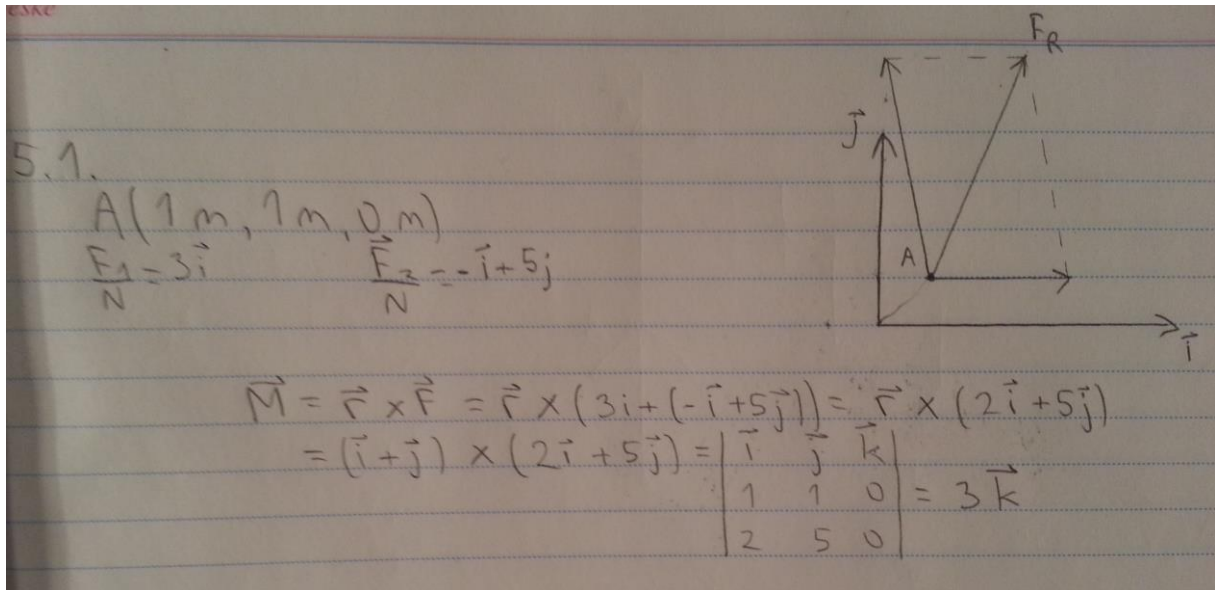 F_R
j⃗
5.1.
A(1m, 1m, 0m)
F⃗₁/N = 3i⃗    F⃗₂/N = -i⃗+5j
A
i⃗
M⃗ = r⃗ × F⃗ = r⃗ × (3i+(-i⃗+5j⃗)) = r⃗ × (2i⃗+5j⃗)
= (i⃗+j⃗) × (2i⃗+5j⃗) = | i⃗ j⃗ k⃗ |
| 1 1 0 | = 3k⃗
| 2 5 0 |